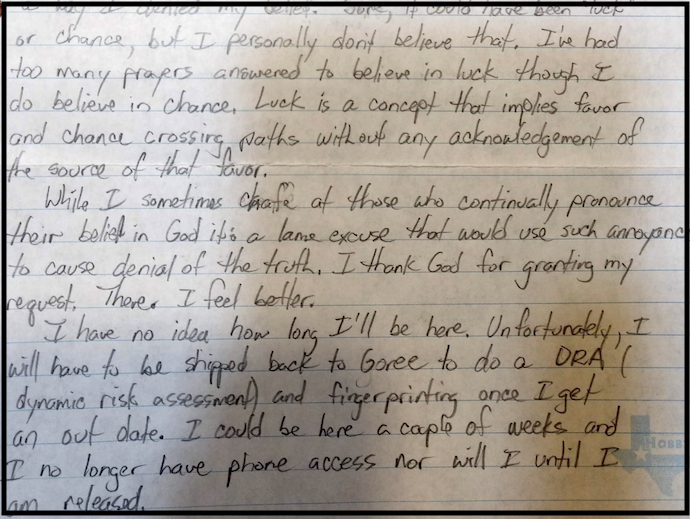 a way I denied my belief. Sure, it could have been luck
or chance, but I personally don't believe that. I've had
too many prayers answered to believe in luck though I
do believe in chance. Luck is a concept that implies favor
and chance crossing paths without any acknowledgement of
the source of that favor.
While I sometimes chafe at those who continually pronounce
their belief in God it's a lame excuse that would use such annoyanc
to cause denial of the truth. I thank God for granting my
request. There. I feel better.
I have no idea how long I'll be here. Unfortunately, I
will have to be shipped back to Goree to do a DRA (
dynamic risk assessment) and fingerprinting once I get
an out date. I could be here a caple of weeks and
I no longer have phone access nor will I until I
am released.